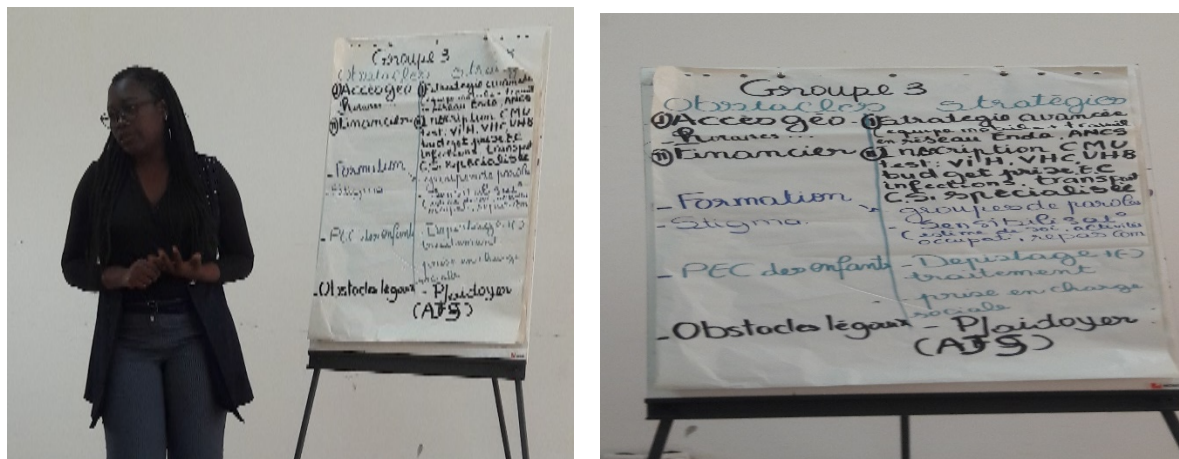 Groupe 3
Obstacles stratégies
① Accès géo
Horaires
② Financier
- Formation
- Stigma
- PEC des enfants
- Obstacles légaux
① Stratégie
équipe mobile - travail
en réseau Enda, ANCS
② Inscription CMU
test: VIH, VHC, VHB
budget prise EC
infections, transport
C.S. spécialisée
groupe de parole
- Dépistage, (-)
traitement
prise en charge
sociale
- Plaidoyer
(AJS)
Groupe 3
Obstacles stratégies
① Accès géo -
- Horaires...
② Financier
- Formation
- Stigma.
- PEC des enfants
- Obstacles légaux
① Stratégie avancée
équipe mobile - travail
en réseau Enda, ANCS
② Inscription CMU
test: ViH, VHC, VHB
budget prise EC
infections, transport
C.S. spécialisée
groupes de parole
- Sensibilisat°
(estime de soi, activités
occupat, repas com
- Dépistage, (-)
traitement
- prise en charge
sociale
- Plaidoyer
(AJS)